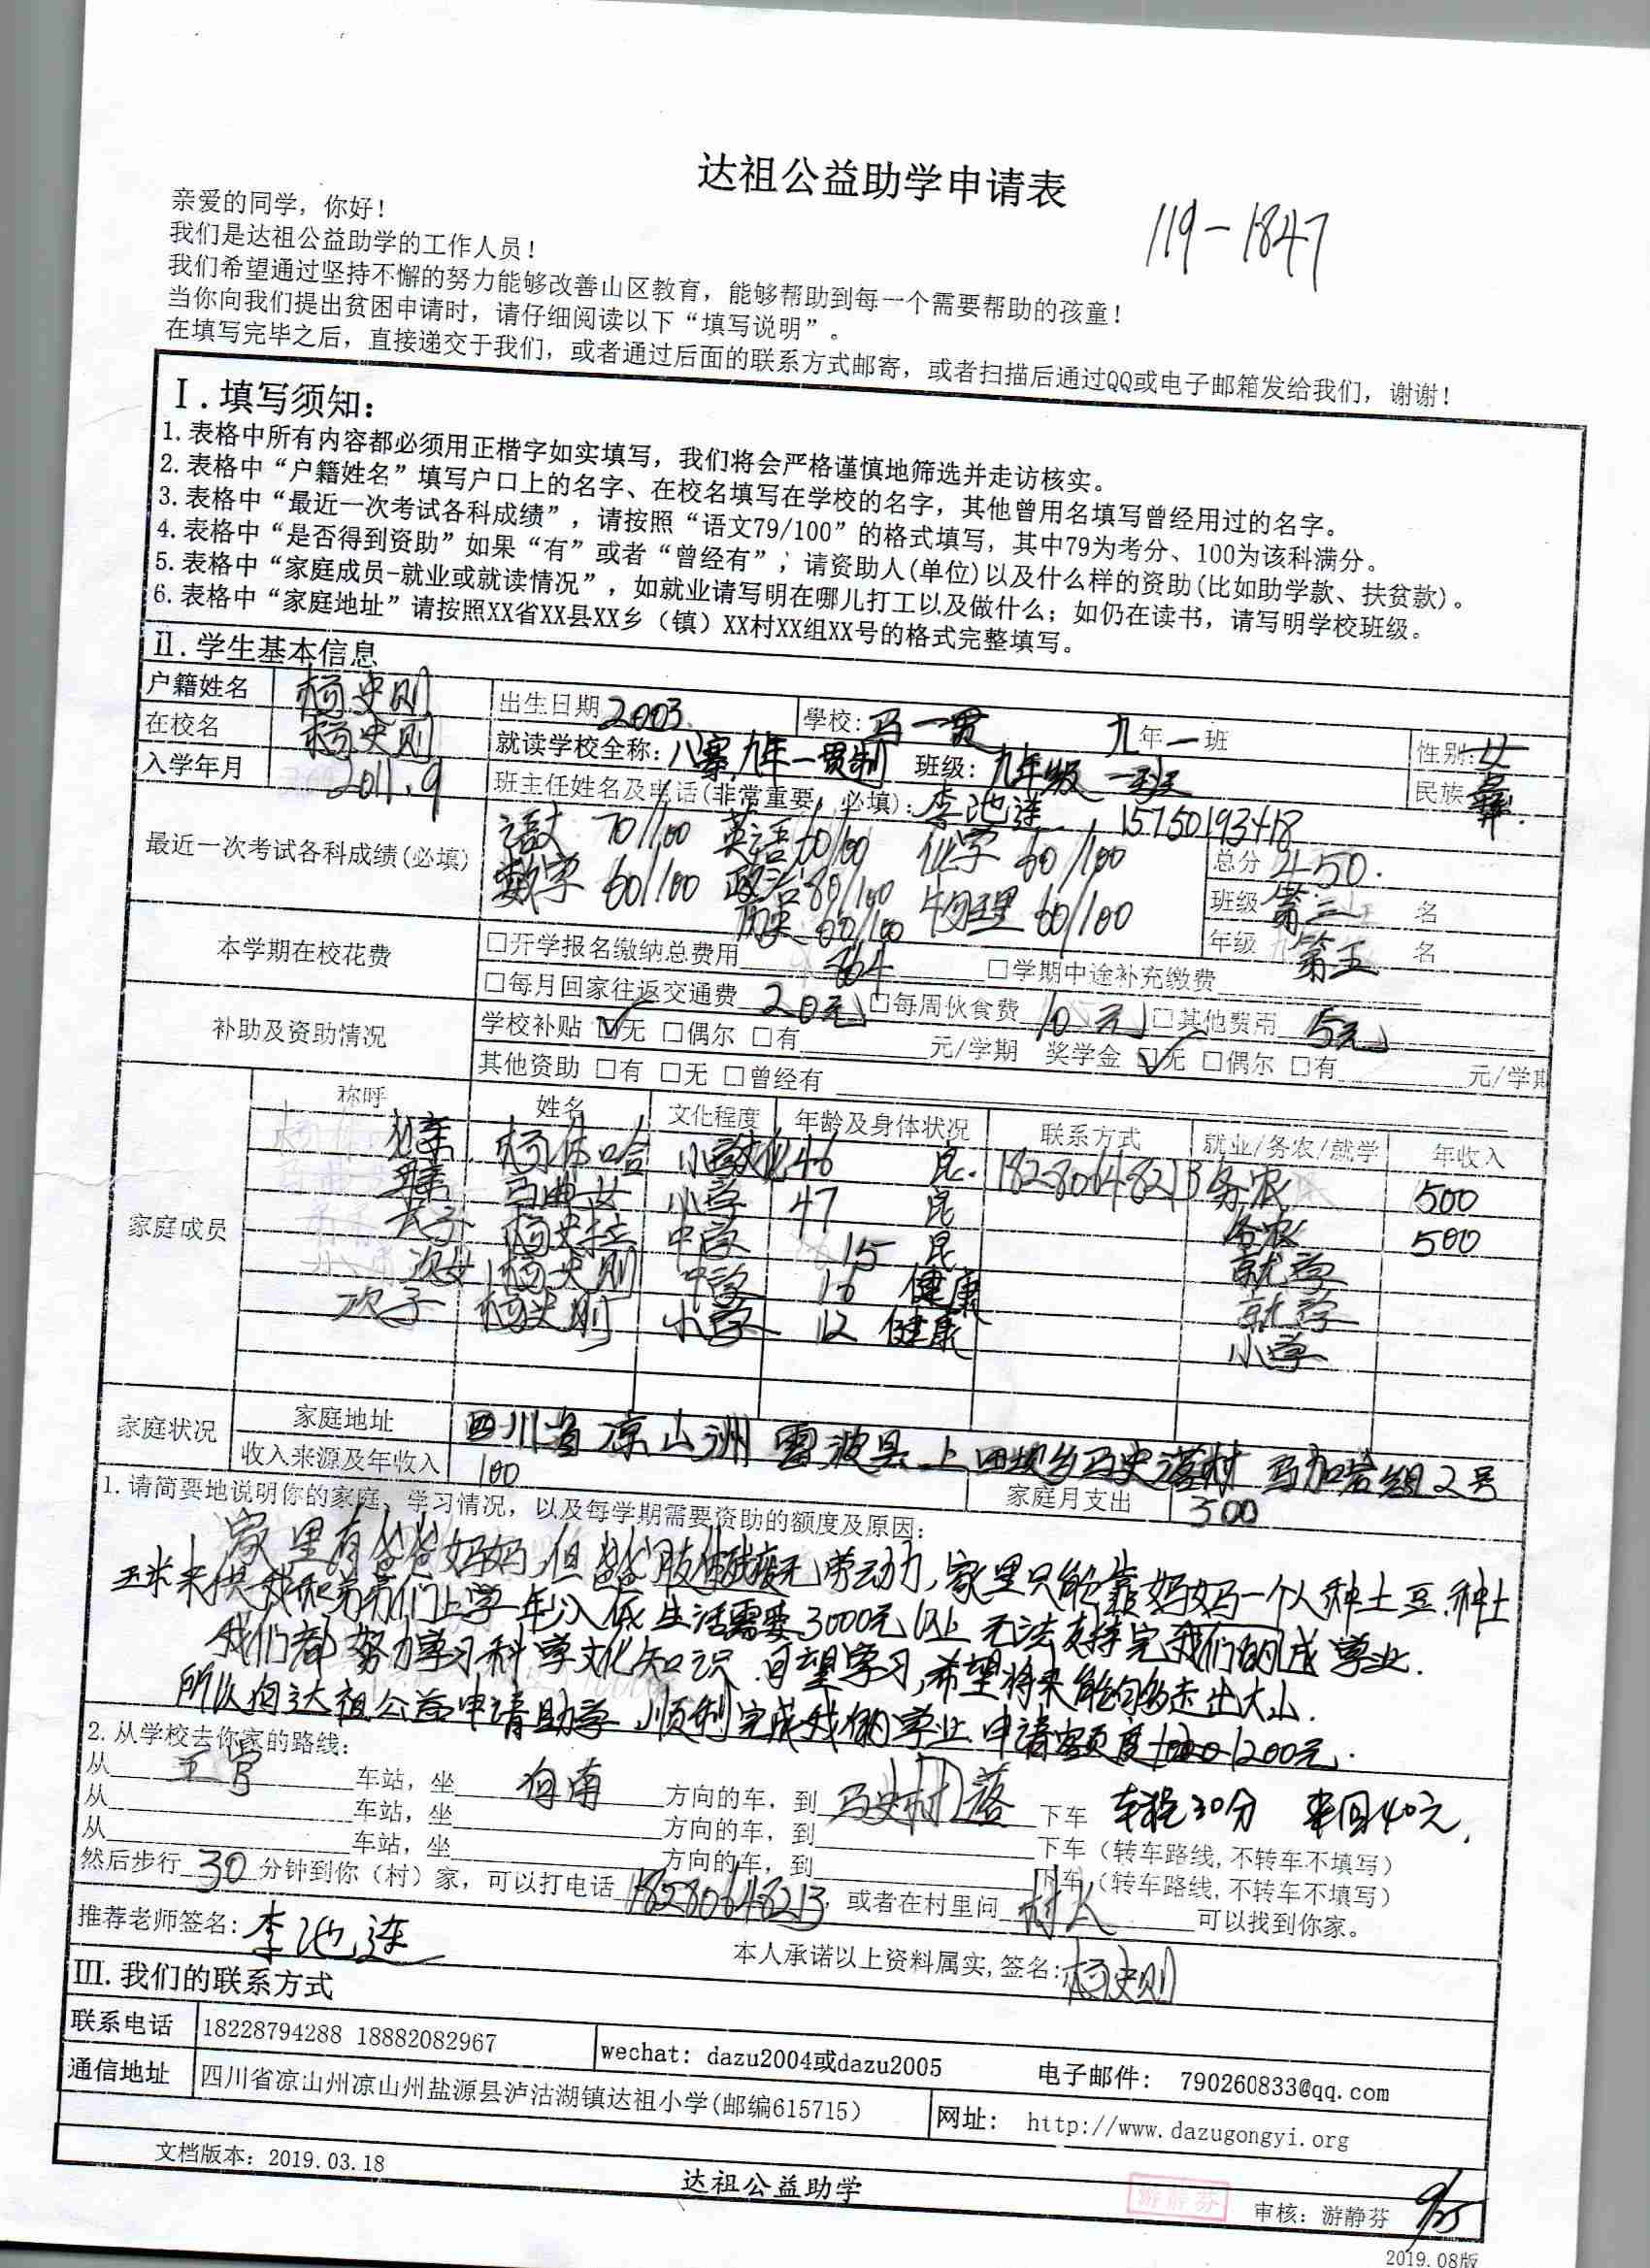 达祖公益助学申请表
119-1847
亲爱的同学，你好！
我们是达祖公益助学的工作人员！
我们希望通过坚持不懈的努力能够改善山区教育，能够帮助到每一个需要帮助的孩童！
当你向我们提出贫困申请时，请仔细阅读以下“填写说明”。
在填写完毕之后，直接递交于我们，或者通过后面的联系方式邮寄，或者扫描后通过QQ或电子邮箱发给我们，谢谢！
Ⅰ.填写须知：
1.表格中所有内容都必须用正楷字如实填写，我们将会严格谨慎地筛选并走访核实。
2.表格中“户籍姓名”填写户口上的名字、在校名填写在学校的名字，其他曾用名填写曾经用过的名字。
3.表格中“最近一次考试各科成绩”，请按照“语文79/100”的格式填写，其中79为考分、100为该科满分。
4.表格中“是否得到资助”如果“有”或者“曾经有”；请资助人(单位)以及什么样的资助(比如助学款、扶贫款)。
5.表格中“家庭成员-就业或就读情况”，如就业请写明在哪儿打工以及做什么；如仍在读书，请写明学校班级。
6.表格中“家庭地址”请按照XX省XX县XX乡（镇）XX村XX组XX号的格式完整填写。
Ⅱ.学生基本信息
户籍姓名 杨史则 出生日期 2003. 學校:马一贯 九年一班 性别:女
在校名 杨史则 就读学校全称:八寨九年一贯制 班级:九年级一班 民族 彝.
入学年月 2011.9 班主任姓名及电话(非常重要，必填):李池连 15750193418
最近一次考试各科成绩(必填) 语文 70/100 英语 60/100 化学 60/100 总分 450.
数字 60/100 政治 80/100 物理 60/100 班级 第三 名
历史 60/100 年级 第五 名
本学期在校花费 □开学报名缴纳总费用 764 □学期中途补充缴费
□每月回家往返交通费 20元 □每周伙食费 10元 □其他费用 5元
补助及资助情况 学校补贴 ☑无 □偶尔 □有 元/学期 奖学金 ☑无 □偶尔 □有 元/学期
其他资助 □有 □无 □曾经有
家庭成员 称呼 姓名 文化程度 年龄及身体状况 联系方式 就业/务农/就学 年收入
杨体哈 小学文化 46 昆. 18280648213 务农 500
马曲女 小学 47 昆 务农 500
长子 中学 15 昆 就学
次女 杨史则 中学 16 健康 就学
次子 杨史刚 小学 12 健康 小学
家庭状况 家庭地址 四川省凉山洲雷波县上田坝乡马史落村马加岩组2号
收入来源及年收入 100 家庭月支出 300
1.请简要地说明你的家庭、学习情况，以及每学期需要资助的额度及原因:
家里有爸爸妈妈,但爸爸肢体残疾无劳动力,家里只能靠妈妈一个人种土豆.种土
玉米来供我和弟弟们上学年收入低生活需要3000元以上无法支持完我们的成学业.
我们都努力学习科学文化知识.目望学习,希望将来能够走出大山.
所以向达祖公益申请助学顺利完成我的学业.申请额度1200元.
2.从学校去你家的路线:
从 王官 车站，坐 向南 方向的车，到 马史村落 下车 车程30分 来回40元,
从 车站，坐 方向的车，到 下车（转车路线,不转车不填写）
从 车站，坐 方向的车，到 下车（转车路线,不转车不填写）
然后步行 30 分钟到你（村）家，可以打电话 18280648213，或者在村里问 村人 可以找到你家。
推荐老师签名:李池连 本人承诺以上资料属实,签名:杨史则
Ⅲ.我们的联系方式
联系电话 18228794288 18882082967 wechat: dazu2004或dazu2005 电子邮件: 790260833@qq.com
通信地址 四川省凉山州凉山州盐源县泸沽湖镇达祖小学(邮编615715) 网址: http://www.dazugongyi.org
文档版本: 2019.03.18 达祖公益助学 游静芬 审核: 游静芬 9/25
2019.08版